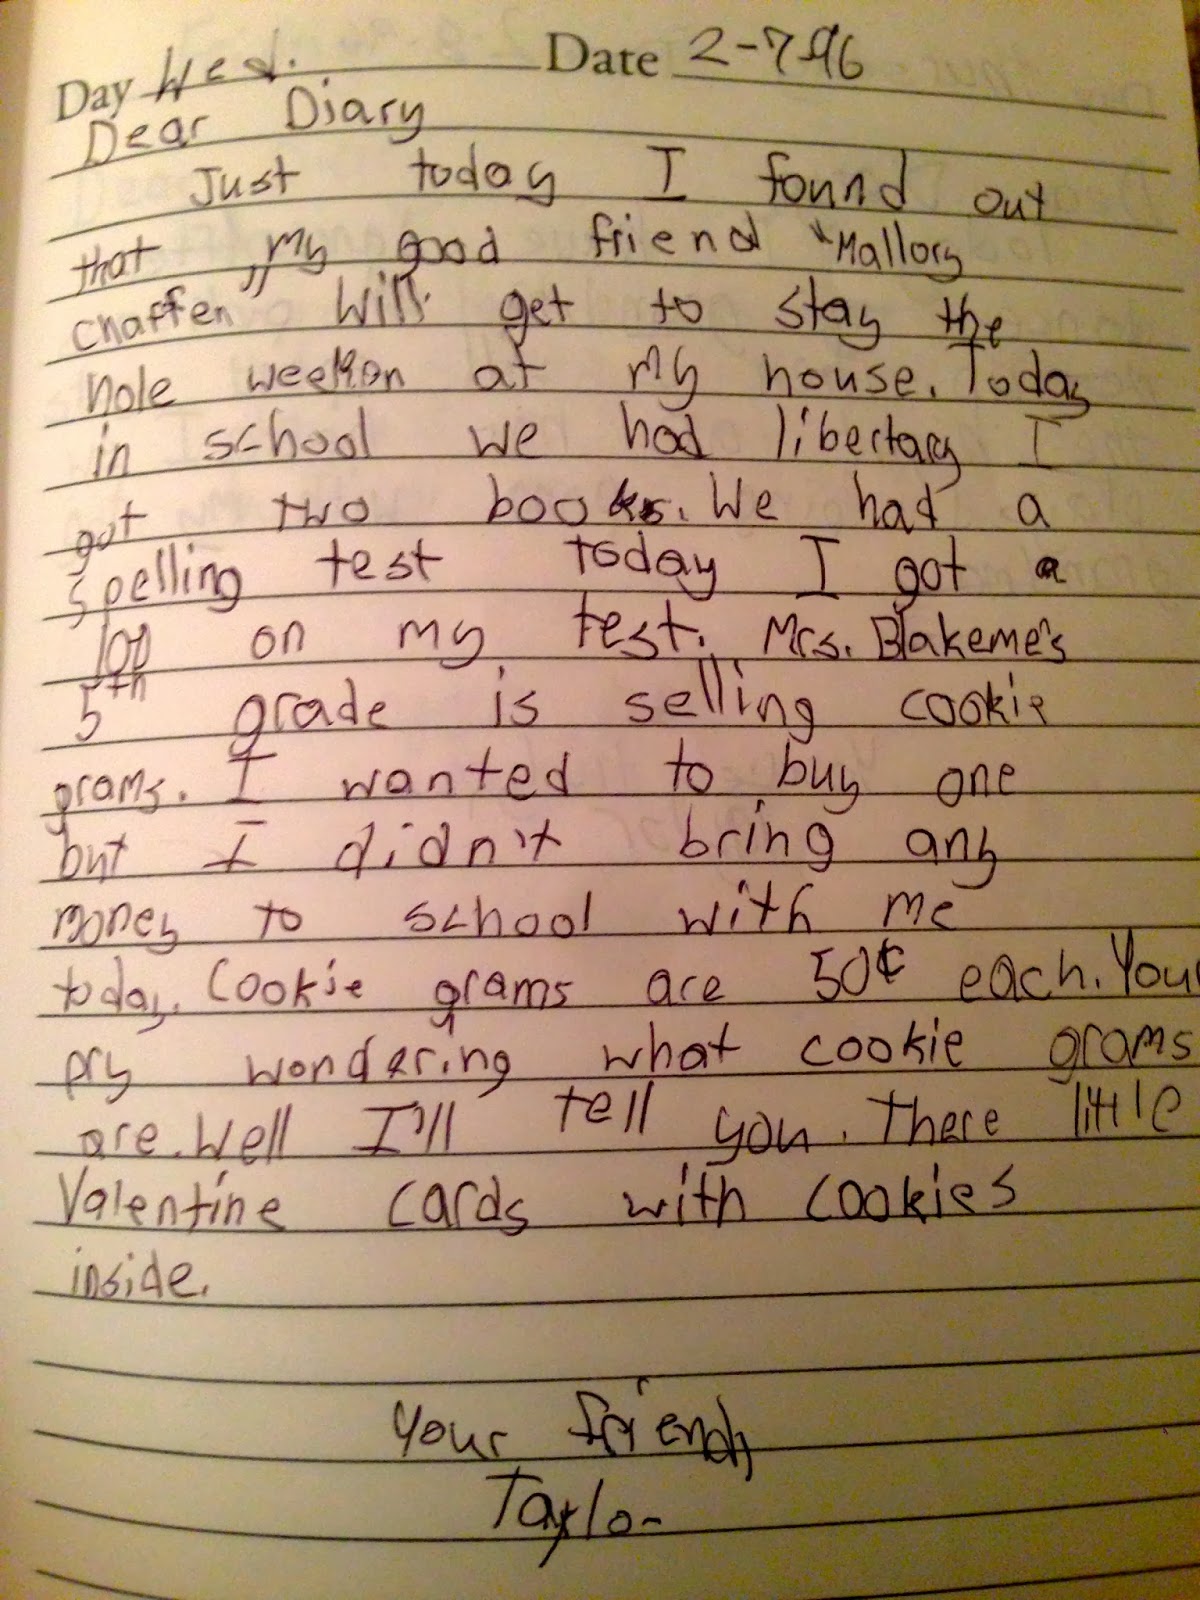 Day Wed. Date 2-7-96
Dear Diary
Just today I found out
that my good friend "Mallory
Chaffen" will get to stay the
hole weekon at my house. Today
in school we had libertary I
got two books. We had a
spelling test today I got a
100 on my test. Mrs. Blakeme's
5th grade is selling cookie
grams. I wanted to buy one
but I didn't bring any
money to school with me
today. Cookie grams are 50¢ each. Your
pry wondering what cookie grams
are. Well I'll tell you. There little
Valentine cards with cookies
inside.
Your friend,
Taylor